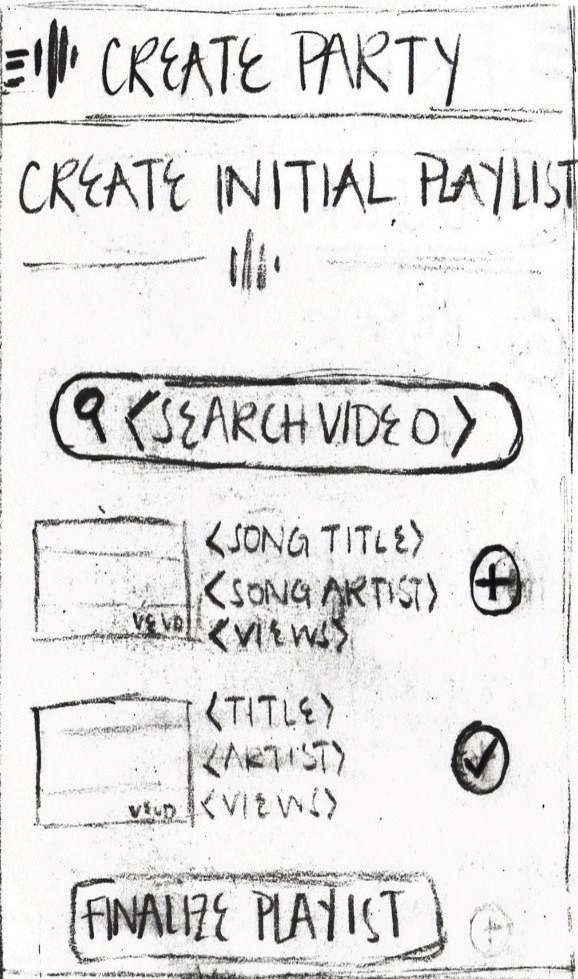 CREATE PARTY
CREATE INITIAL PLAYLIST
<SEARCH VIDEO>
<SONG TITLE>
<SONG ARTIST>
<VIEWS>
VEVO
<TITLE>
<ARTIST>
<VIEWS>
VEVO
FINALIZE PLAYIST